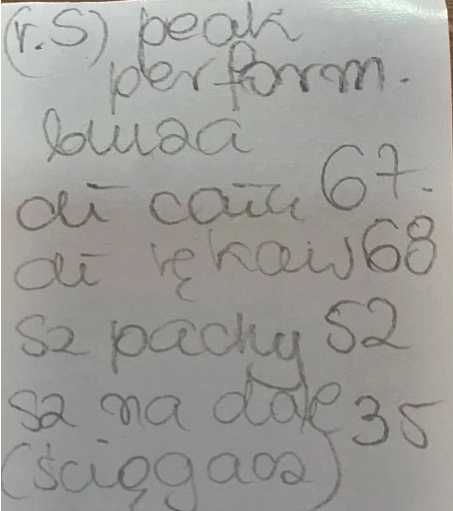 (r.S) peak
perform.
bluza
dł całk 67.
dł rękaw 68
sz pachy 52
sz na dole 35
(ściągacz)